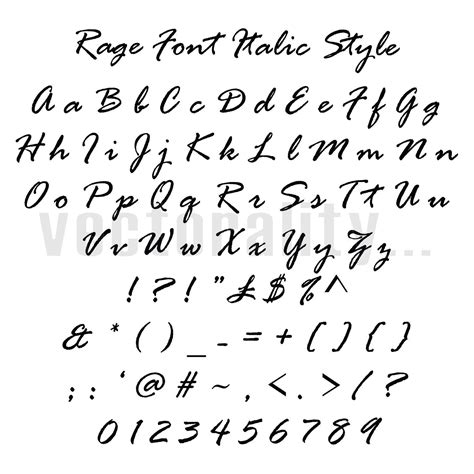 Rage Font Italic Style
A a B b C c D d E e F f G g
H h I i J j K k L l M m N n
O o P p Q q R r S s T t U u
vectorality...
V v W w X x Y y Z z
! ? ! " £ $ % ^
& * ( ) _ - = + [ ] { }
; : ‘ @ # ~ , < . > / ?
0 1 2 3 4 5 6 7 8 9